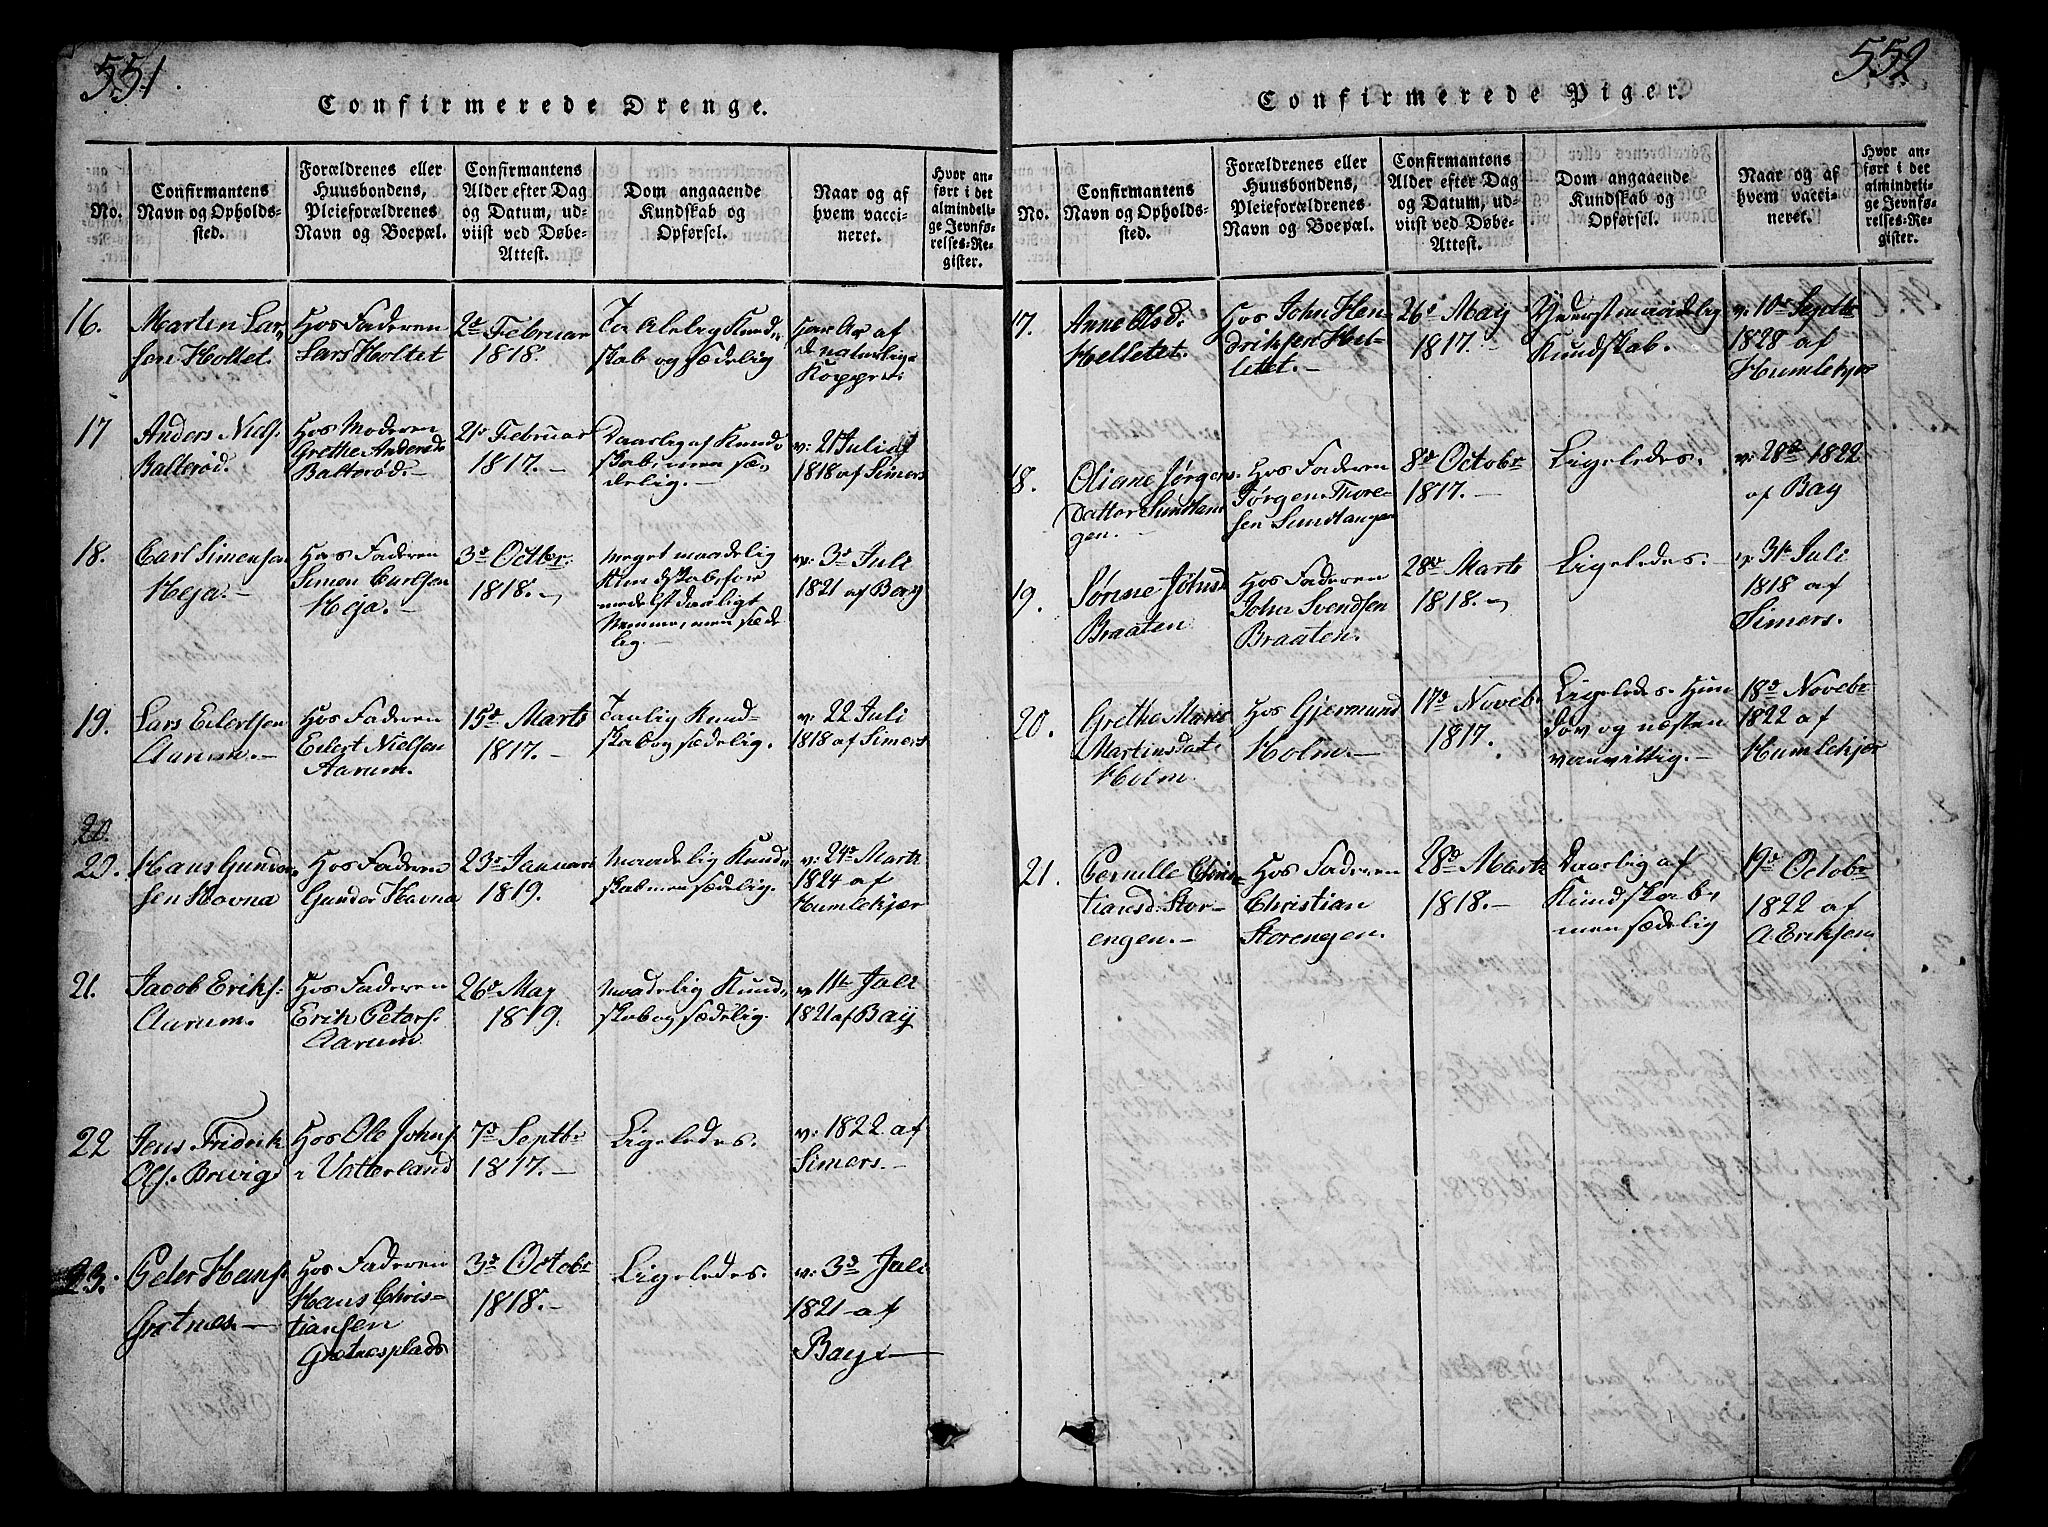 551
Confirmerede Drenge.
No.
Confirmantens
Navn og Opholds-
sted.
Forældrenes eller
Huusbondens,
Pleieforældrenes
Navn og Boepæl.
Confirmantens
Alder efter Dag
og Datum, ud-
viist ved Døbe-
Attest.
Dom angaaende
Kundskab og
Opførsel.
Naar og af
hvem vacci-
neret.
Hvor an-
ført i det
almindeli-
ge Jevnfø-
relses-Re-
gister.
16.
Martin Lar-
sen Holtet.
Hos Faderen
Lars Holtet
2de Februar
1818.
Taalelig Kund-
skab og sædelig
Har Ar af
de naturlige
Kopper.
17
Anders Niels.
Balterød.
Hos Moderen
Grethe Andersd.
Balterød.
21de Februar
1817.
Daarlig af Kund-
skab, men sæ-
delig.
v: 21 Juli af
1818 af Simers
18.
Carl Simensen
Heja.
Hos Faderen
Simen Carlsen
Heja.
3d Octbr
1818.
meget maadelig
Kundskab for
medelst daarligt
Nemme, men sæde
lig.
v: 3d Juli
1821 af Bay
19.
Lars Eilertsen
Aarum.
Hos Faderen
Eilert Nielsen
Aarum.
15d Marts
1817.
Taalig Kund-
skab og sædelig.
v: 22 Juli
1818 af Simers
20.
20.
Hans Gunder-
sen Havna
Hos Faderen
Gunder Havna
23d Januari
1819.
Maadelig Kund-
skab men sædelig.
v: 24d Marts
1824 af
Humlekjær
21.
Jacob Eriks.
Aarum.
Hos Faderen
Erik Peters.
Aarum
26d May
1819.
Maadelig Kund-
skab og sædelig.
v 11te Juli
1821 af Bay
22
Jens Fridrik
Ols. Brevig
Hos Ole Johns
i Vatterland
7d Septbr
1817.
Ligeledes.
v: 1822 af
Simers.
23.
Peder Hans.
Grotnes
Hos Faderen
Hans Chris-
tiansen
Grotnesplads
3d Octobr
1818.
Ligeledes.
v: 3d Juli
1821 af
Bay
552
Confirmerede Piger.
No.
Confirmantens
Navn og Opholds-
sted.
Forældrenes eller
Huusbondens,
Pleieforældrenes
Navn og Boepæl.
Confirmantens
Alder efter Dag
og Datum, ud-
viist ved Døbe-
Attest.
Dom angaaende
Kundskab og
Opførsel.
Naar og af
hvem vacci-
neret.
Hvor an-
ført i det
almindeli-
ge Jevnfø-
relses-Re-
gister.
17.
Anne Olsd.
Helletet.
Hos John Hen
driksen Hel-
letet.
26d May
1817.
Yderst maadelig
Kundskab.
v: 10d Septbr
1828 af
Humlekjær
18.
Oliane Jørgens
datter Sundtan
gen.
Hos Faderen
Jørgen Thore-
sen Sundtangen
8d Octobr
1817.
Ligeledes.
v: 28de 1822
af Bay
19.
Sørine Johnsd
Braaten
Hos Faderen
John Svendsen
Braaten.
28d Marts
1818.
Ligeledes.
v: 31te Juli
1818 af
Simers.
20.
Grethe Marie
Martinsdat.
Holm
Hos Gjermund
Holm.
17d Novebr
1817.
Ligeledes. Hun
døv og næsten
vanvittig.
18d Novebr
1822 af
Humlekjær
21.
Pernille Chris-
tiansd. Stor-
engen.
Hos Faderen
Christian
Storengen.
28d Marts
1818.
Daarlig af
Kundskab,
men sædelig
19d Octobr
1822 af
A. Eriksen